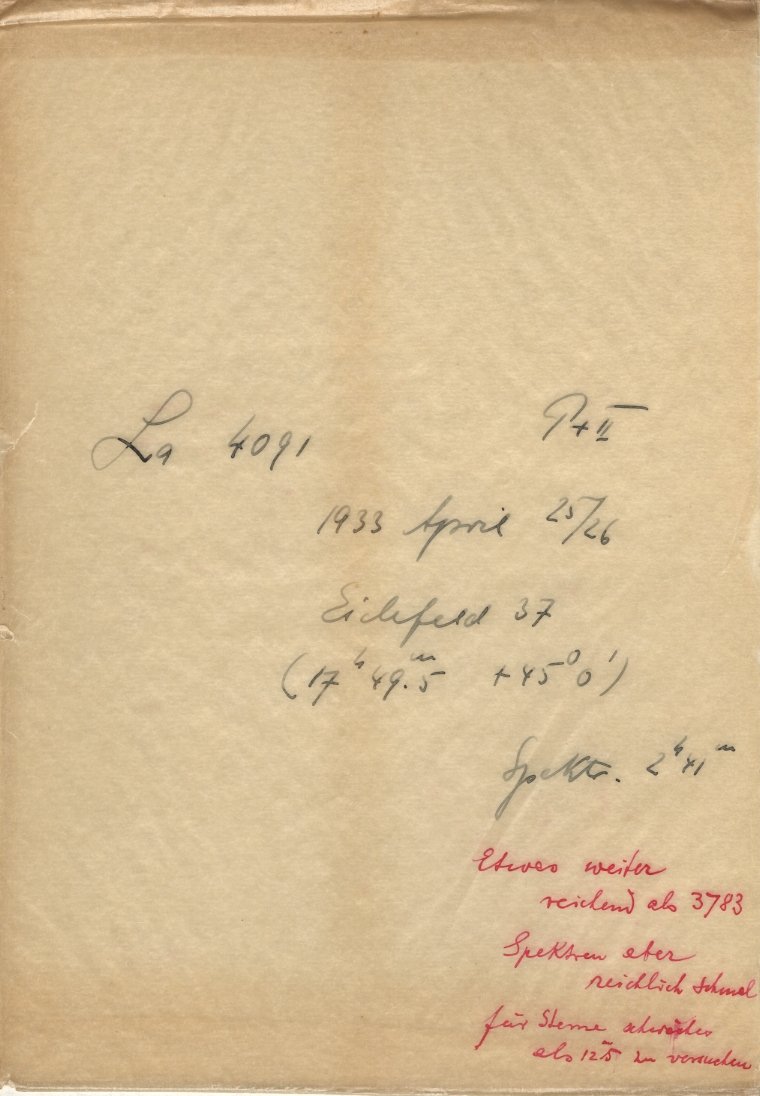 La 4091 P+II
1933 April 25/26
Eichfeld 37
(17ʰ 49.ᵐ5 +45⁰ 0')
Spektr. 2ʰ41ᵐ
Etwas weiter
reichend als 3783
Spektren aber
reichlich schmal
für Sterne schwächer
als 12ᵐ5 zu versuchen